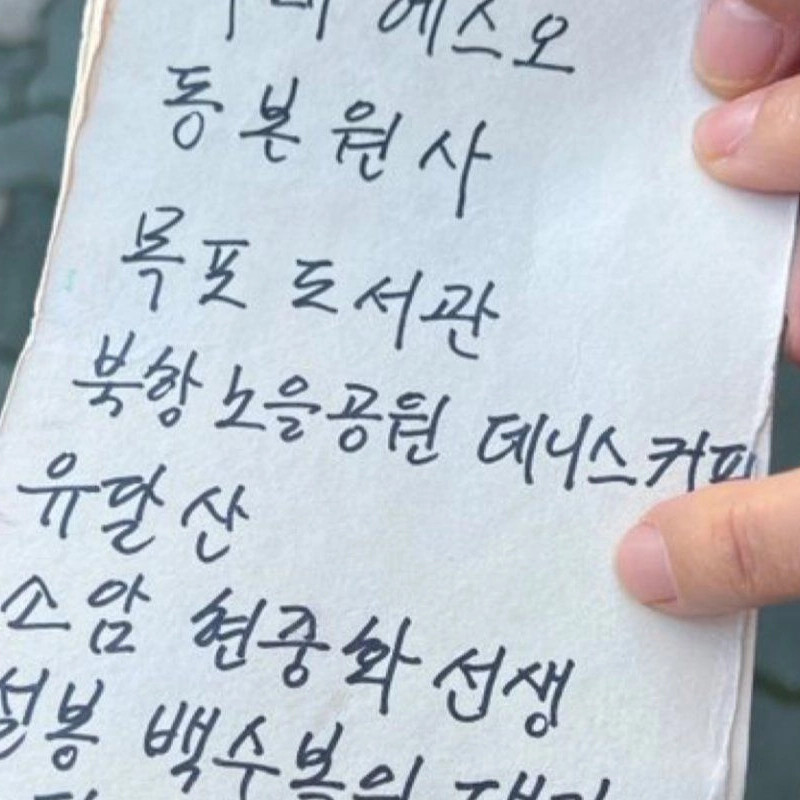 에스오
동본원사
목포 도서관
북항 노을공원 데니스커피
유달산
소암 현중화 선생
설봉 백수복의